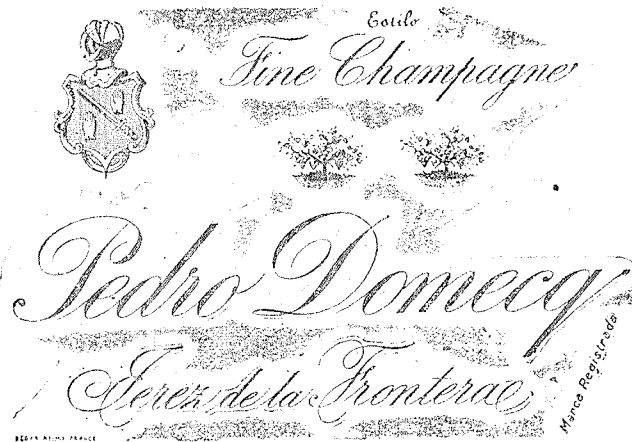 Estilo
Fine Champagne
Pedro Domecq
Jerez de la Frontera
Marca Registrada
REIMS FRANCE